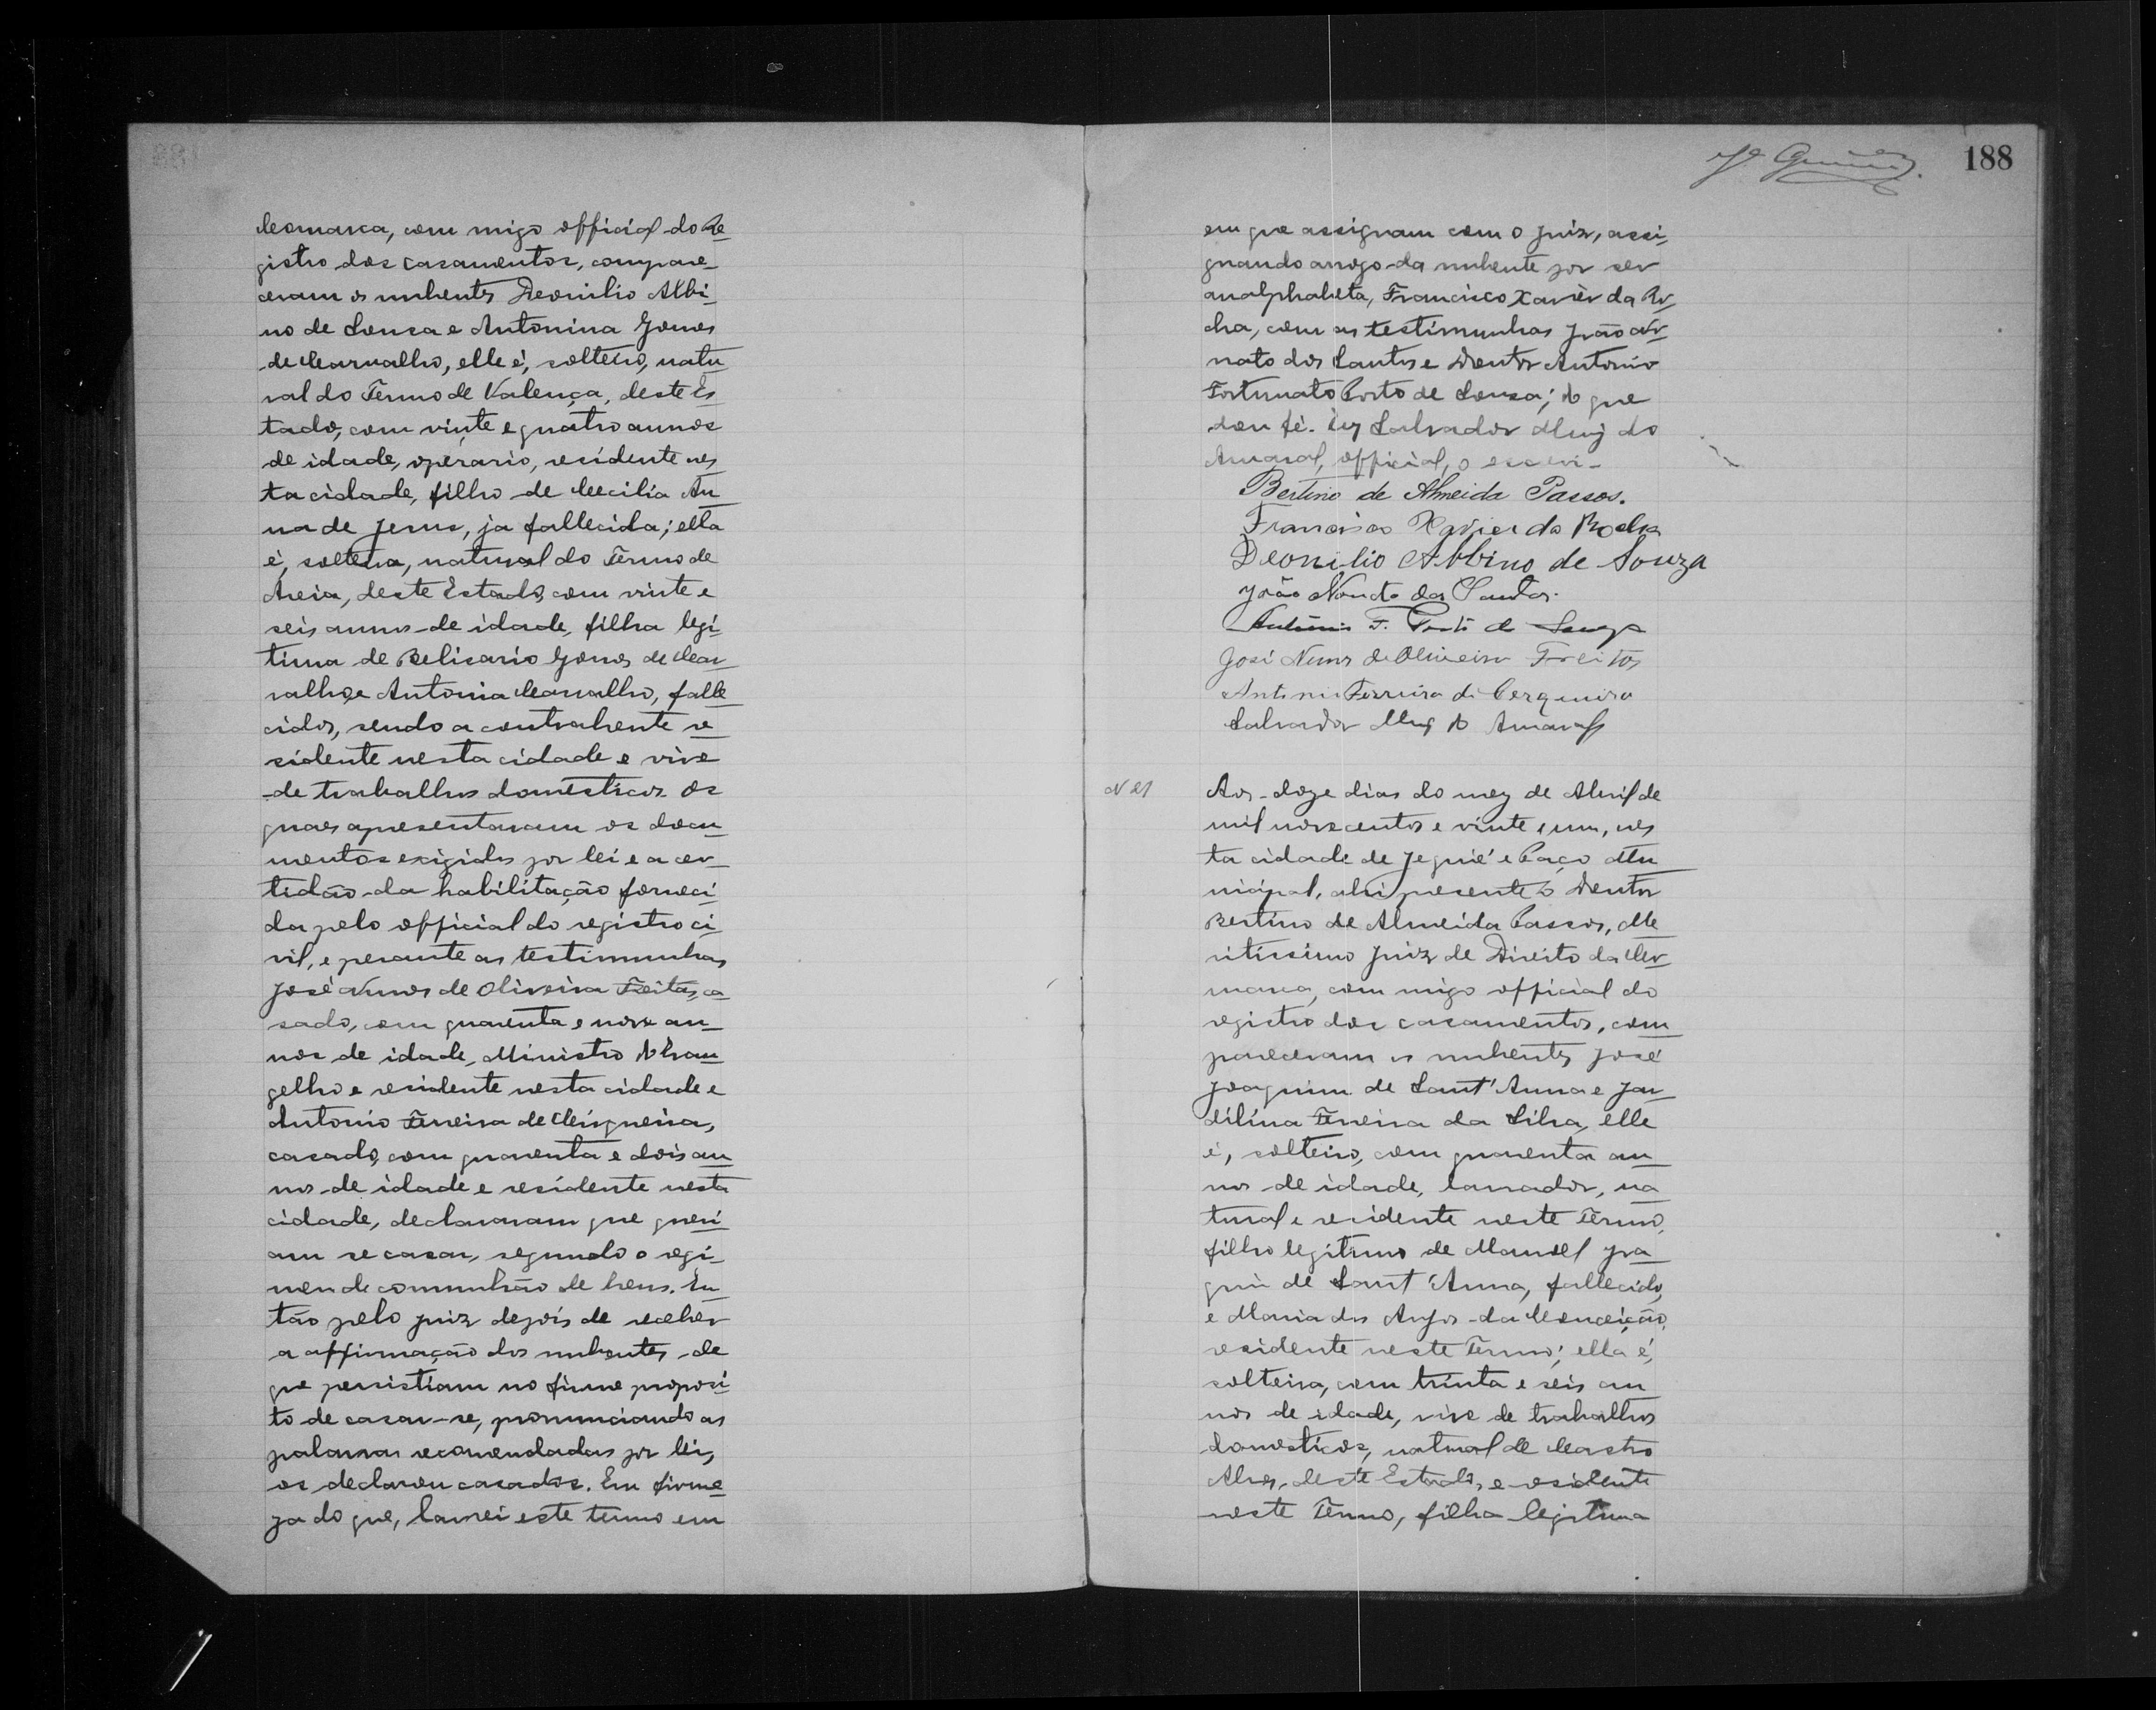 Comarca, com migo official do Re
gistro dos casamentos, compare
ceram os nubentes Deonilio Albi
no de Souza e Antonina Gomes
de Carvalho, elle é, solteiro, natu
ral do Termo de Valença, deste Es
tado, com vinte e quatro annos
de idade, operario, residente nes
ta cidade, filho de Cecilia An
na de Jesus, ja fallecida; ella
é, solteira, natural do Termo de
Areia, deste Estado, com vinte e
seis annos de idade, filha legi
tima de Belisario Gomes de Car
valho, e Antonia Carvalho, falle
cidos, sendo a contrahente re
sidente nesta cidade e vive
de trabalhos domesticos. Os
quaes apresentaram os docu
mentos exigidos por lei e a cer
tidão da habilitação forneci
da pelo official do registro ci
vil, e perante as testimunhas
José Nunes de Oliveira Freitas, ca
sado, com quarenta e nove an
nos de idade, Ministro do Evan
gelho e residente nesta cidade e
Antonio Ferreira de Cerqueira,
casado, com quarenta e dois an
nos de idade e residente nesta
cidade, declararam que queri
am se casar, segundo o regi
men de communhão de bens. En
tão pelo juiz depois de receber
a affirmação dos nubentes de
que persistiam no firme proposi
to de casar-se, pronunciando as
palavras recomendadas por lei,
os declarou casados. Em firme
za do que, lavrei este termo em
188
em que assignam com o juiz, assi
gnando a rogo da nubente por ser
analphabeta, Francisco Xavier da Ro
cha, com as testimunhas João No
nato dos Santos e Doutor Antonio
Fortunato Porto de Souza; do que
dou fé. Eu Salvador Muniz do
Amaral, official, o escrevi-
Bertino de Almeida Passos.
Francisco Xavier da Rocha
Deonilio Albino de Souza
João Nonato dos Santos.
Antonio F. Porto de Souza
José Nunes de Oliveira Freitas
Antonio Ferreira de Cerqueira
Salvador Muniz do Amaral
N 21
Aos doze dias do mez de Abril de
mil novecentos e vinte e um, nes
ta cidade de Jequié e Paço Mu
nicipal, ahi presente o Doutor
Bertino de Almeida Passos, Me
ritissimo Juiz de Direito da Co
marca, com migo official do
registro dos casamentos, com
pareceram os nubentes José
Joaquim de Sant'Anna e Jar
dilina Ferreira da Silva, elle
é, solteiro, com quarenta an
nos de idade, lavrador, na
tural e residente neste Termo,
filho legitimo de Manoel Joa
quim de Sant'Anna, fallecido,
e Maria dos Anjos da Conceição,
residente neste Termo; ella é,
solteira, com trinta e seis an
nos de idade, vive de trabalhos
domesticos, natural de Castro
Alves, deste Estado, e residente
neste Termo, filha legitima